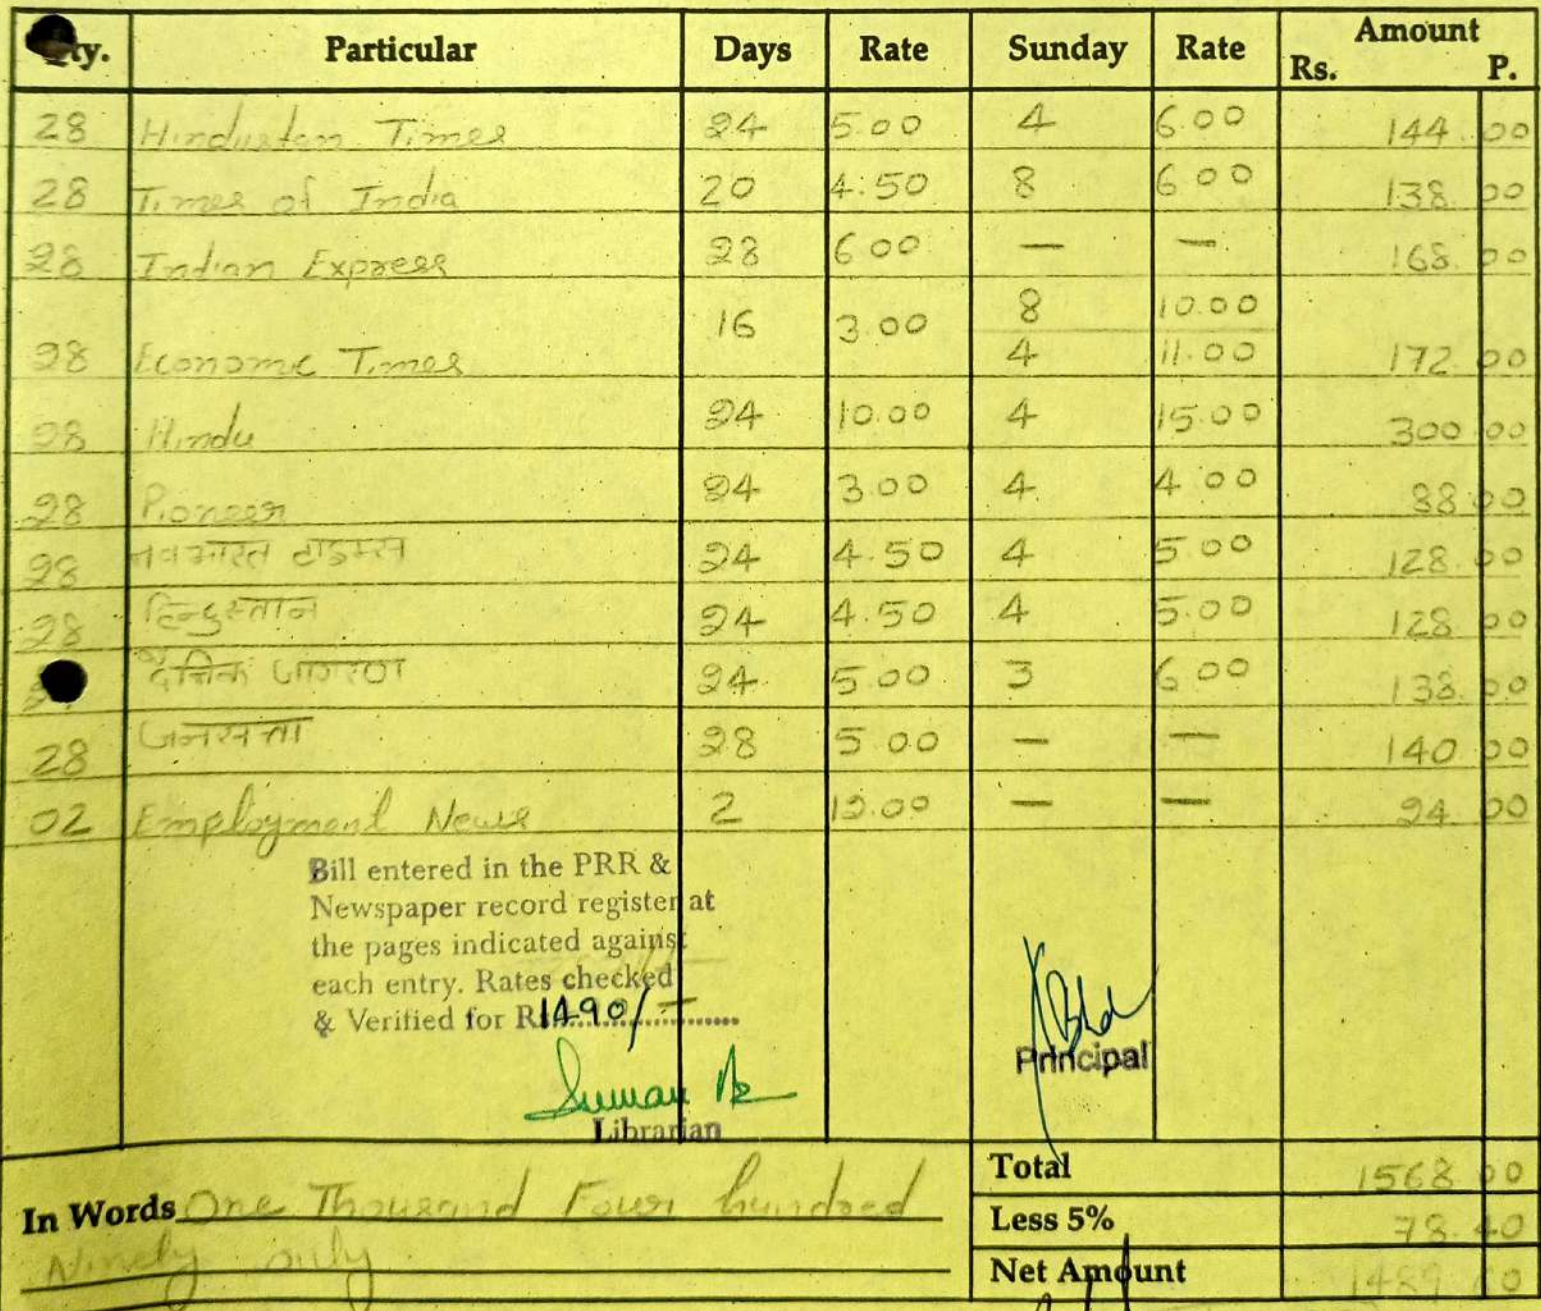 ty. Particular Days Rate Sunday Rate Amount
Rs. P.
28 Hindustan Times 24 5.00 4 6.00 144.00
28 Times of India 20 4.50 8 6.00 138.00
28 Indian Express 28 6.00 — — 168.00
8 10.00
16 3.00
28 Economic Times 4 11.00 172.00
28 Hindu 24 10.00 4 15.00 300.00
28 Pioneer 24 3.00 4 4.00 88.00
28 नवभारत टाइम्स 24 4.50 4 5.00 128.00
28 हिन्दुस्तान 24 4.50 4 5.00 128.00
दैनिक जागरण 24 5.00 3 6.00 138.00
28 जनसत्ता 28 5.00 — — 140.00
02 Employment News 2 12.00 — — 24.00
Bill entered in the PRR &
Newspaper record register at
the pages indicated against
each entry. Rates checked
& Verified for Rs. 1490/-
Suman
Librarian
Principal
Total 1568.00
In Words One Thousand Four hundred
Ninely only
Less 5% 78.40
Net Amount 1489.60